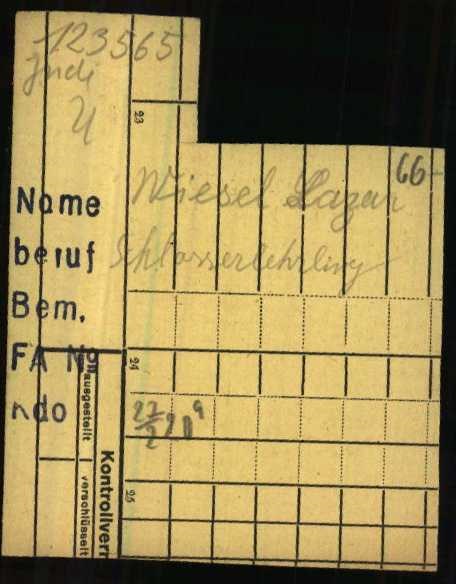 123565
Jude
U
23
66-
Name Wiesel Lazar
beruf Schlosserlehrling
Bem.
FA No
ndo
24
27/2
25
ausgestellt
verschlüsselt
Kontrollverm